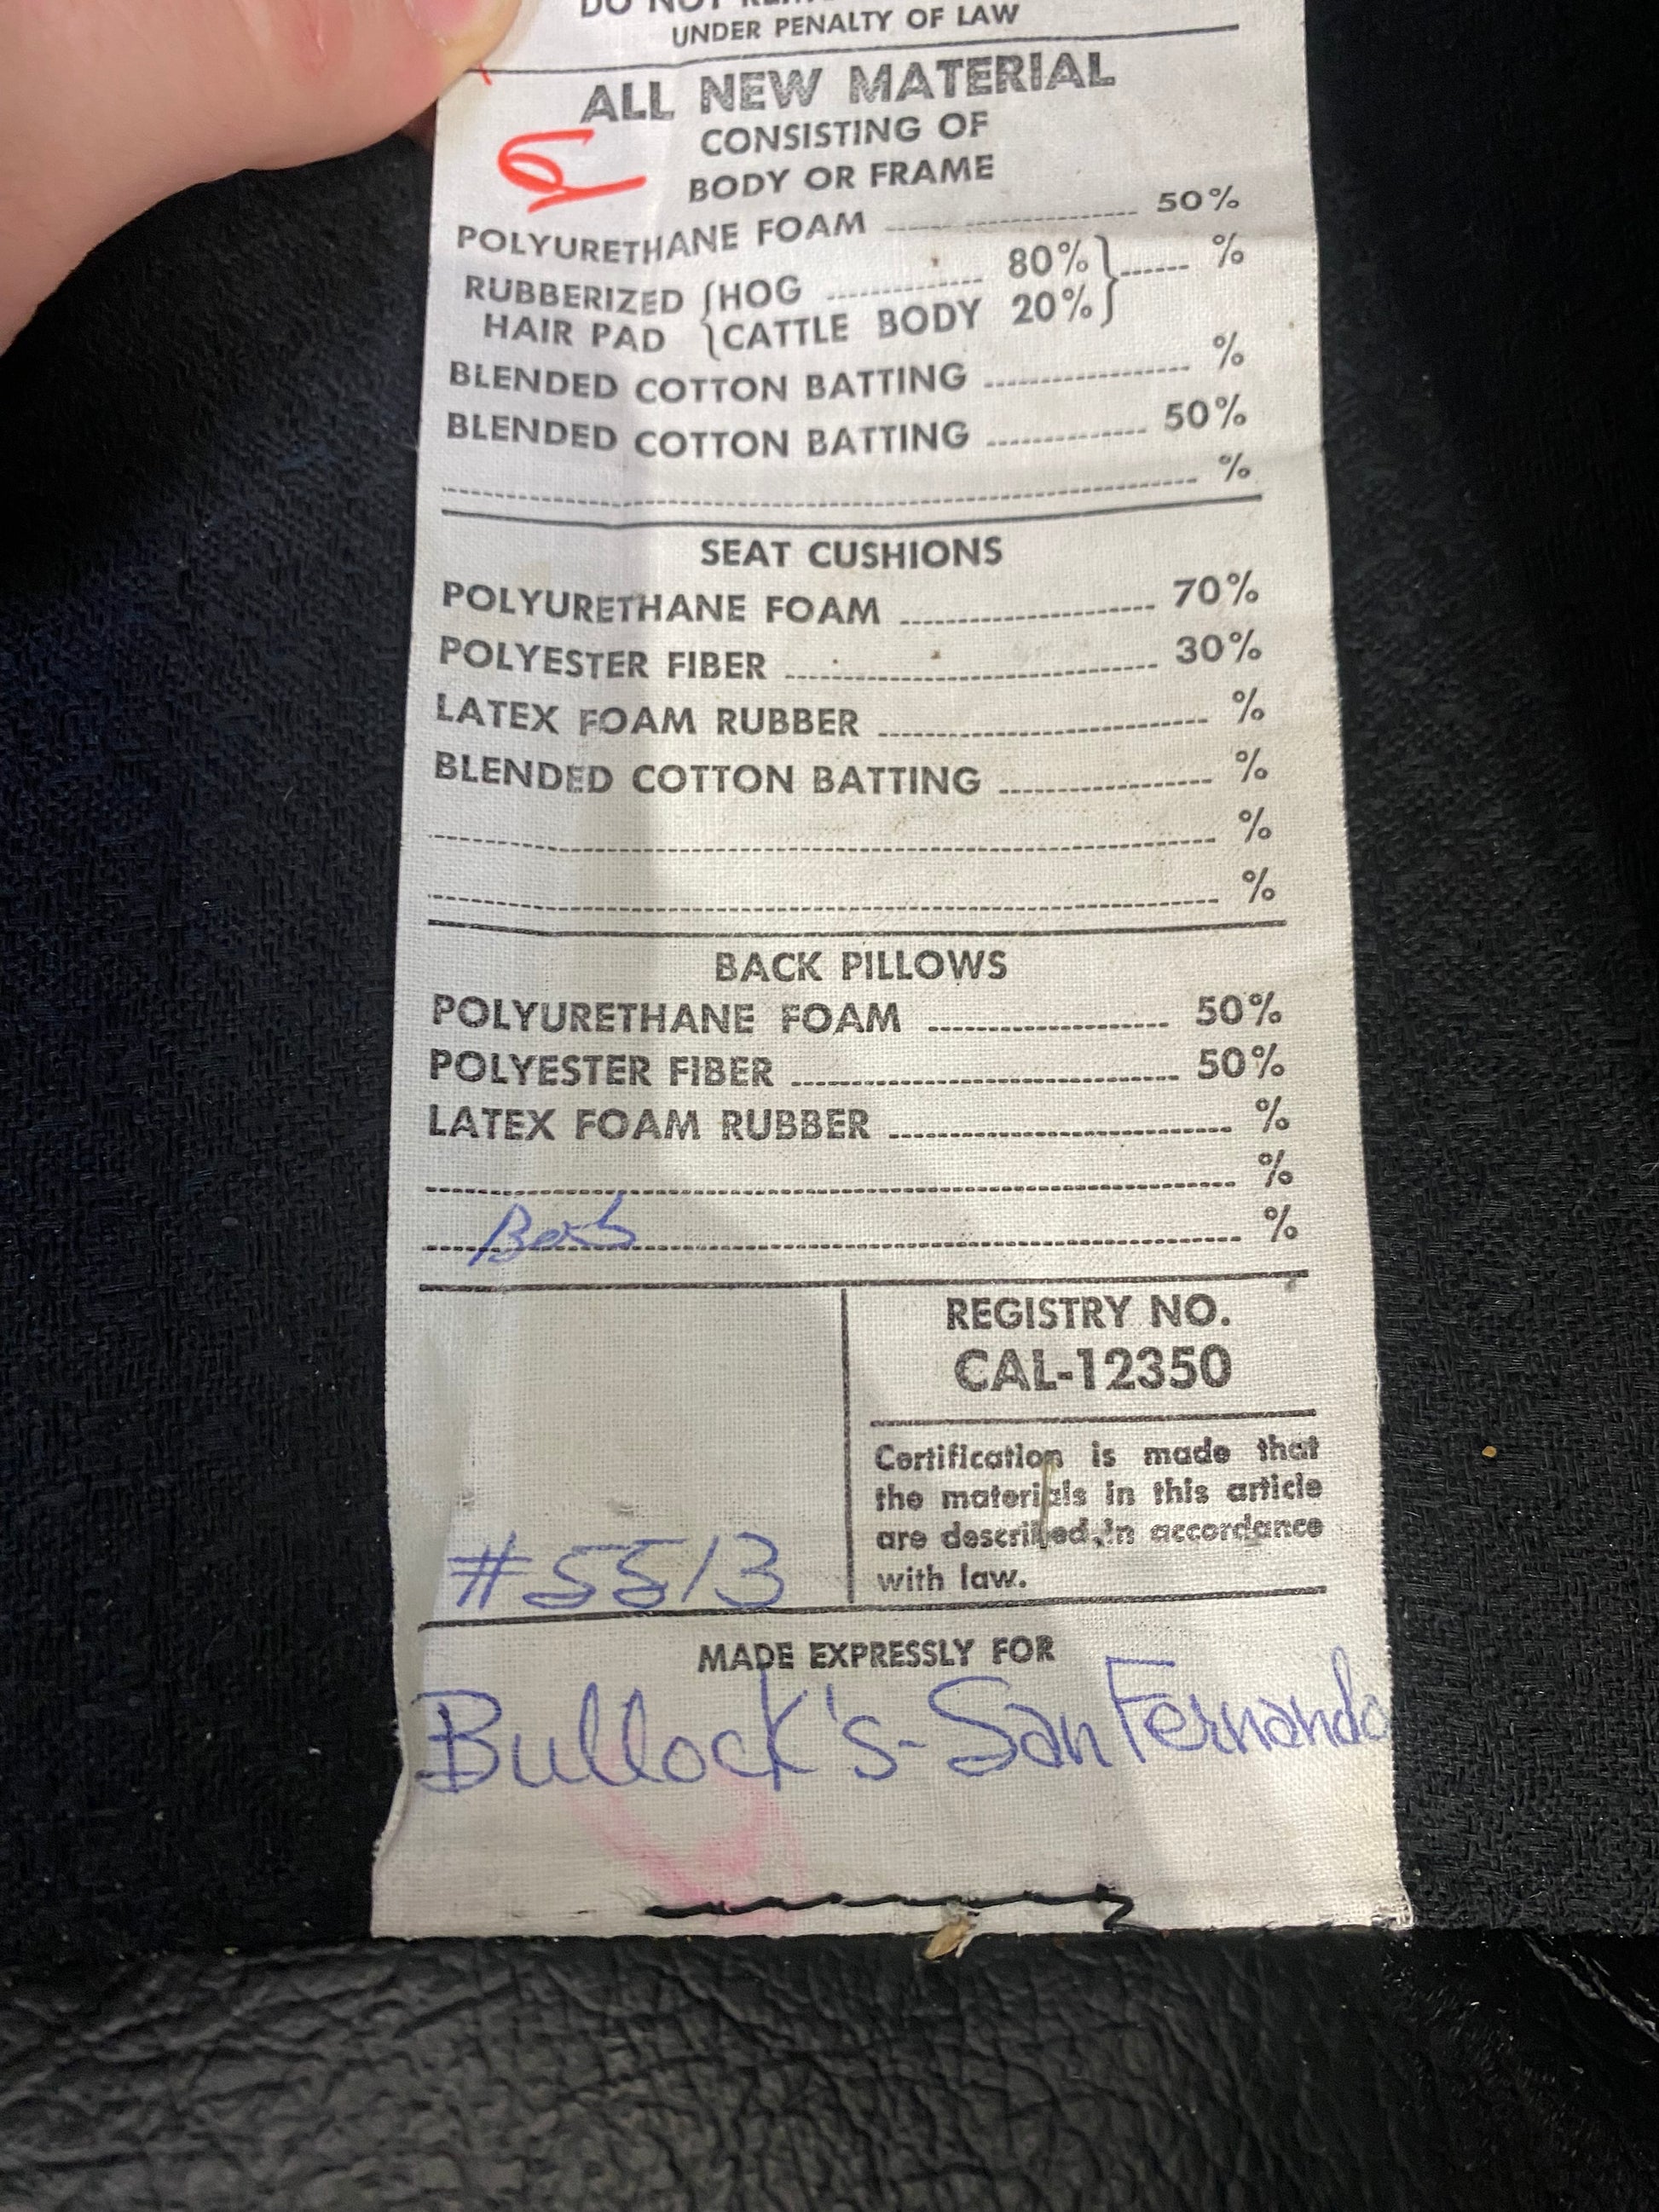 UNDER PENALTY OF LAW
ALL NEW MATERIAL
CONSISTING OF
BODY OR FRAME
POLYURETHANE FOAM 50%
RUBBERIZED HAIR PAD { HOG 80% } %
CATTLE BODY 20%
BLENDED COTTON BATTING %
BLENDED COTTON BATTING 50%
%
SEAT CUSHIONS
POLYURETHANE FOAM 70%
POLYESTER FIBER 30%
LATEX FOAM RUBBER %
BLENDED COTTON BATTING %
%
%
BACK PILLOWS
POLYURETHANE FOAM 50%
POLYESTER FIBER 50%
LATEX FOAM RUBBER %
%
%
REGISTRY NO.
CAL-12350
Certification is made that
the materials in this article
are described in accordance
with law.
#5513
MADE EXPRESSLY FOR
Bullock's-San Fernando